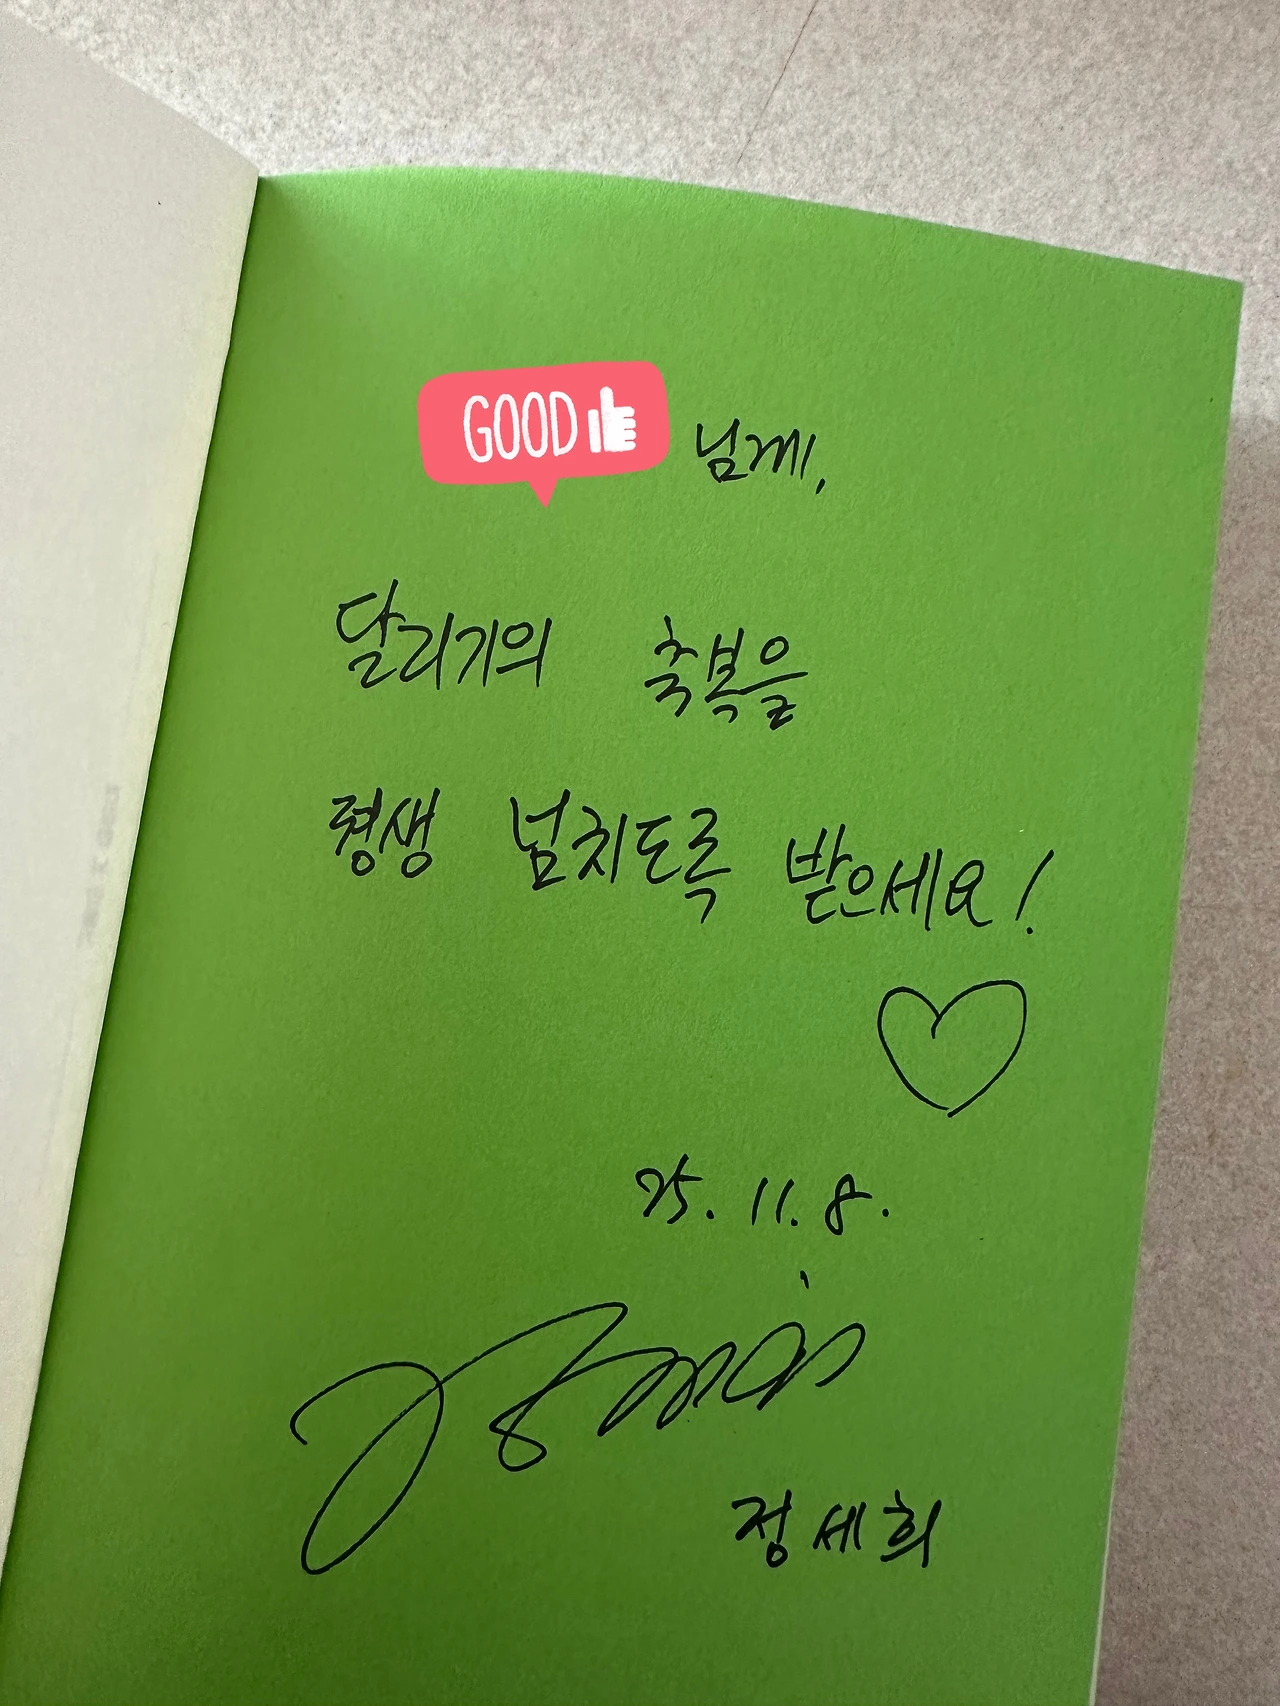 GOOD 님께,
달리기의 축복을
평생 넘치도록 받으세요!
25. 11. 8.
정세희